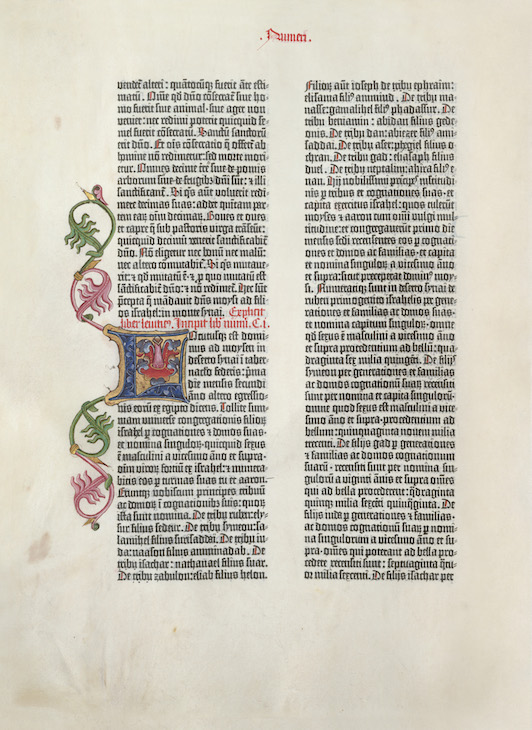 . Numeri .
vendet alteri : quātorūcȝ fuerit ãte esti-
matū . Nūne qđ dño cōsecrat̃ siue ho-
mo fuerit siue animal · siue ager non
veniet : nec redimi poterit quicquid se-
mel fuerit cōsecratū . Sanctū sanctorū
erit dño . Et oīs cōsecratio q̃ offert̃ ab
homine nō redimetur : sed morte mori-
etur . Omnes decime t̃re siue de pomis
arborum siue de frugibȝ dñi sūt : & illi
sanctificant̃ . Si q̃s aut̃ voluerit redi-
mere decimas suas : addet quītam par-
tem eaȝ oīm decimaȝ . Boues et oues
et capre q̃ sub pastoris virga trãseūt :
quicquid decimū venerit sanctificabit̃
dño . Nō eligetur nec bonū nec malū :
nec altero cōmutabit̃ . Si q̃s mutaue-
rit : & qđ mutatū ē · & p quo mutatū est
sãctificabit̃ dño : & nō redimet̃ . Hec sūt
p̃cepta q̃ mãdauit dñs moysi ad fili-
os israhel : in monte synai . Explicit
liber leuitic⁹ . Incipit lib̃ num̃i . C . I .
Locutusȝ est domi-
nus ad moysen in
deserto synai ī taber-
naclo federis : p̃ma
die mensis secundi
ãno altero egressio-
nis eorū ex egipto dicens . Tollite sum-
mam vniuerse congregationis filioȝ
israhel p cognationes & domos suas ·
et nomina singuloȝ · quicquid sexus
ē masculini a vicesimo āno et supra ·
oīm viroȝ fortiū ex israhel : & numera-
bitis eos p turmas suas tu et aaron .
Eruntqȝ vobiscum principes tribuū
ac domoȝ ī cognationibȝ suis : quoȝ
ista sunt nomina . De tribu ruben : ely-
sur filius sedeur . De tribu symeon : sa-
lamihel filius surisaddai . De tribu iu-
da : naason filius aminadab . De
tribu isachar : nathanael filius suar .
De tribu zabulon : eliab filius helon .
Filioȝ aūt ioseph de tribu ephraim :
elisama fili⁹ amniud . De tribu ma-
nasse : gamalihel fili⁹ phadassur . De
tribu beniamin : abidan filius gede-
onis . De tribu dan : abiezer fili⁹ ami-
saddai . De tribu aser : phegiel filius o-
chran . De tribu gad : eliasaph filius
duel . De tribu neptalim : ahira fili⁹ e-
nan . Hij nobilissimi prīcip̃s m̄ltitudi-
nis p tribus et cognationes suas · et
capita exercitus israhel : quos tulerūt
moyses & aaron cum oīni vulgi mul-
titudine : et congregauerūt primo die
mensis scdi recensentes eos p cognati-
ones et domos ac familias · et capita
et nomina singuloȝ a vicesimo āno
et supra : sicut preceperat dominus moy-
si . Numeratiqȝ sunt in deserto synai de
ruben primogenito israhelis per gene-
rationes et familias ac domos suas
et nomina capitum singuloȝ · omne
qđ sexus ē masculini a vicesimo āno
et supra procedentium ad bellū : qua-
draginta sex milia quingēti . De filijs
symeon per generationes et familias
ac domos cognationū suaȝ recensiti
sunt per nomina et capita singuloȝ
omne quod sexus est masculini a vice-
simo āno et supra · procedentium ad
bellum : quinquaginta nouem milia
trecenti . De filijs gad p generationes
& familias ac domos cognationum
suarū · recensiti sunt per nomina sin-
gulorū a viginti ānis et supra oīnes
qui ad bella procederent : q̃draginta
quinqȝ milia sexcēti quīq̃ginta . De
filijs iuda p generationes & familias ·
ac domos cognationū suaȝ p nomi-
na singulorum a vicesimo āno et su-
pra · oīnes qui poterant ad bella pro-
cedere recensiti sunt : septuaginta q̃tu-
or milia sexcenti . De filijs isachar per